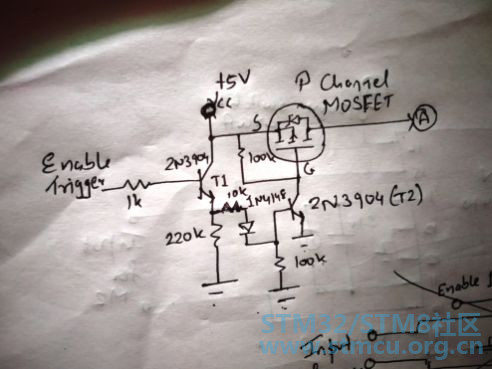 +5V
Vcc
P Channel
MOSFET
S
A
Enable
Trigger
2N3904
100k
G
T1
1k
10k
1N4148
2N3904 (T2)
220k
100k
Enable 1
STM32/STM8社区
www.stmcu.org.cn
Input